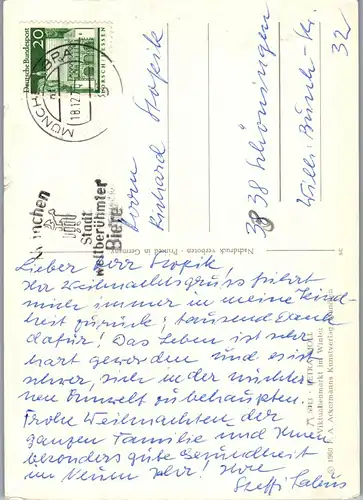 Deutsche Bundespost
20
LORSCH/HESSEN
MÜNCHEN
18.12.
München
Stadt
weltberühmter
Biere
Herrn
Richard Stopik
3338 Schöningen
Wilh. Busch-
32
Nachdruck verboten - Printed in Germany
Lieber Herr Stopik
Ihr Weihnachtsgruss führt
mich immer in meine Kind-
heit zurück; tausend Dank
dafür! Das Leben ist sehr
hart geworden und es ist
schwer, sich in der nüchter-
nen Umwelt zu behaupten.
Frohe Weihnachten der
ganzen Familie und Ihnen
besonders gute Gesundheit
im Neuen Jahr! Ihre
Steffi
Viktualienmarkt im Winter
F. A. Ackermanns Kunstverlag München